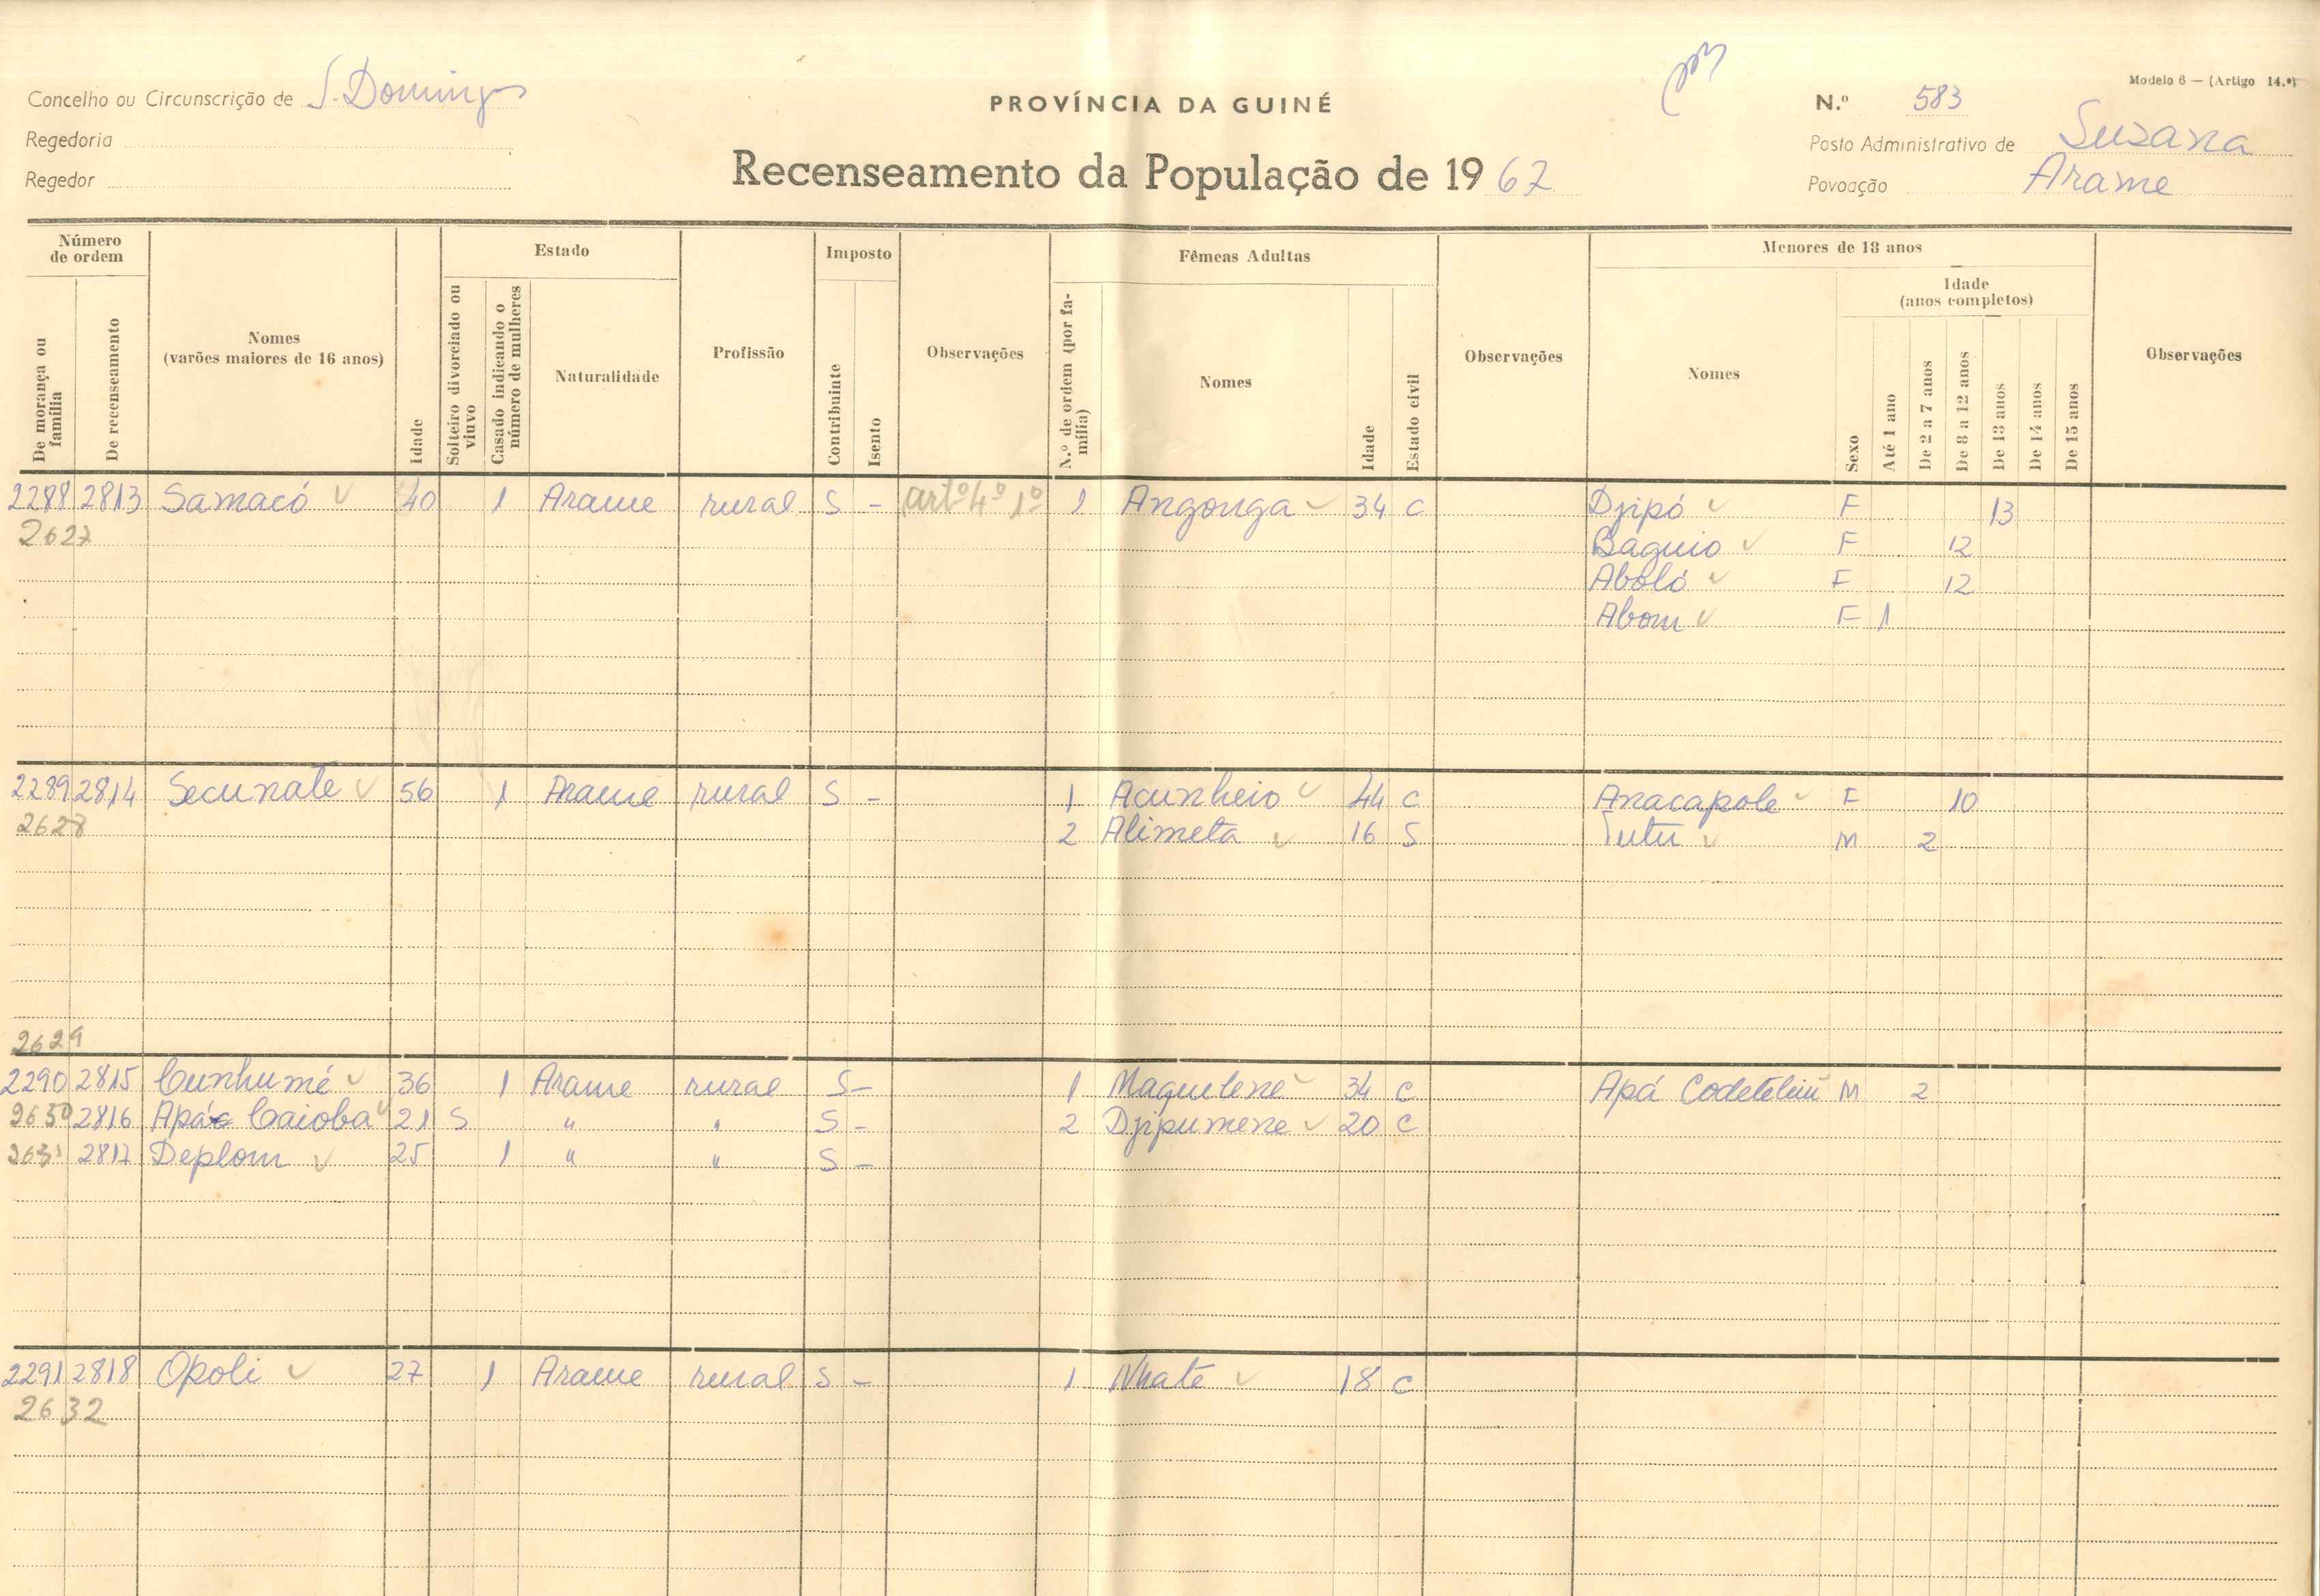 Modelo 6 — (Artigo 14.º)
Concelho ou Circunscrição de S. Domingos
PROVÍNCIA DA GUINÉ
N.º 583
Regedoria
Posto Administrativo de Suzana
Regedor
Recenseamento da População de 1962
Povoação Arame
Número de ordem
Estado
Imposto
Fêmeas Adultas
Menores de 18 anos
Idade (anos completos)
De morança ou família
De recenseamento
Nomes (varões maiores de 16 anos)
Idade
Solteiro divorciado ou viuvo
Casado indicando o número de mulheres
Naturalidade
Profissão
Contribuinte
Isento
Observações
N.º de ordem (por família)
Nomes
Idade
Estado civil
Observações
Nomes
Sexo
Até 1 ano
De 2 a 7 anos
De 8 a 12 anos
De 13 anos
De 14 anos
De 15 anos
Observações
2288 2813 Samacó 40 1 Arame rural S - artº 4º 1º 1 Angonga 34 C Djipó F 13
2627 Baguio F 12
Aboló F 12
Abom F 1
2289 2814 Secunate 56 1 Arame rural S - 1 Acunheio 44 C Anacapole F 10
2628 2 Alimeta 16 S Tutu M 2
2629
2290 2815 Cunhumé 36 1 Arame rural S - 1 Maguelene 34 C Apá M 2
2630 2816 Apá Caioba 21 S " " S - 2 Djipumene 20 C
2631 2817 Deplom 25 1 " " S -
2291 2818 Opoli 27 1 Arame rural S - 1 Nhate 18 C
2632